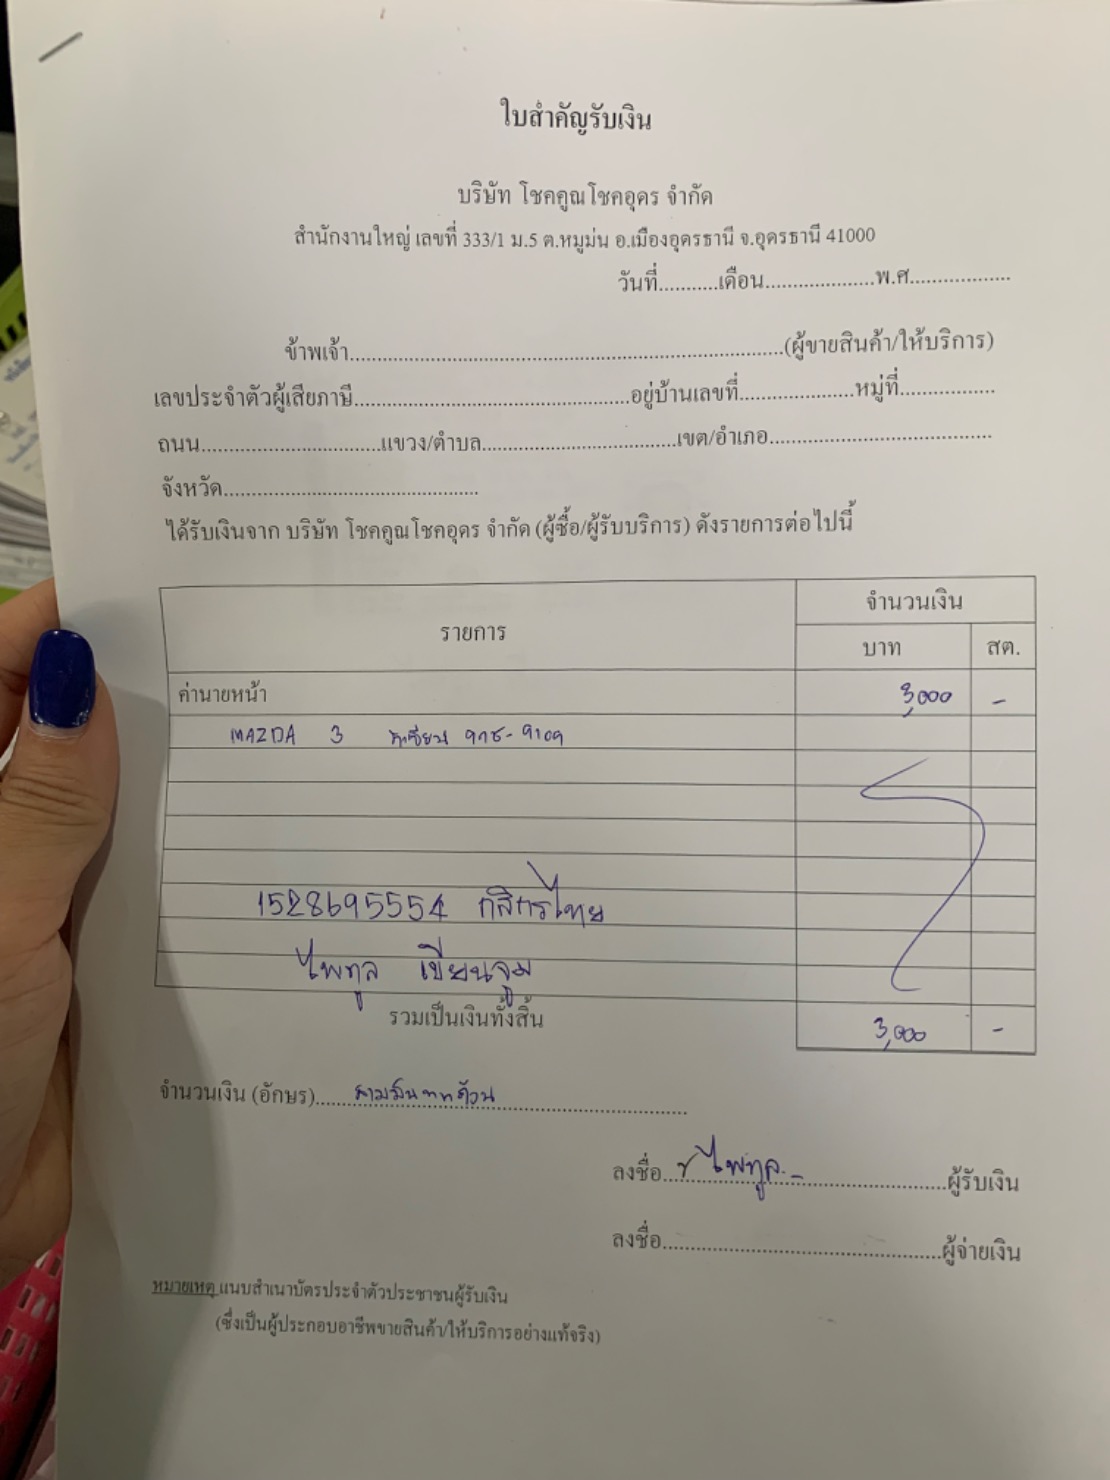 ใบสำคัญรับเงิน
บริษัท โชคคูณโชคอุดร จำกัด
สำนักงานใหญ่ เลขที่ 333/1 ม.5 ต.หมูม่น อ.เมืองอุดรธานี จ.อุดรธานี 41000
วันที่...........เดือน....................พ.ศ..................
ข้าพเจ้า..............................................................................(ผู้ขายสินค้า/ให้บริการ)
เลขประจำตัวผู้เสียภาษี.................................................อยู่บ้านเลขที่.....................หมู่ที่.................
ถนน................................แขวง/ตำบล...................................เขต/อำเภอ........................................
จังหวัด..............................................
ได้รับเงินจาก บริษัท โชคคูณโชคอุดร จำกัด (ผู้ซื้อ/ผู้รับบริการ) ดังรายการต่อไปนี้
รายการ จำนวนเงิน
บาท สต.
ค่านายหน้า 3,000 -
MAZDA 3
1528695554 กสิกรไทย
ไพทูล เขียนจูม
รวมเป็นเงินทั้งสิ้น 3,000 -
จำนวนเงิน (อักษร)....สามพันบาทถ้วน....
ลงชื่อ....ไพทูล....ผู้รับเงิน
ลงชื่อ..................................................ผู้จ่ายเงิน
หมายเหตุ แนบสำเนาบัตรประจำตัวประชาชนผู้รับเงิน
(ซึ่งเป็นผู้ประกอบอาชีพขายสินค้า/ให้บริการอย่างแท้จริง)